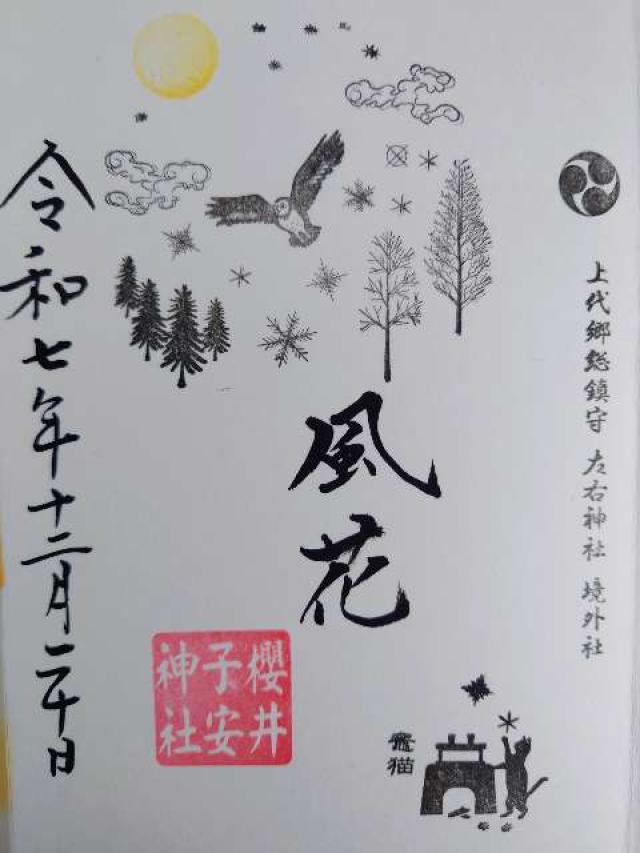 上代郷総鎮守 左右神社 境外社
風花
竈猫
櫻井
子安
神社
令和七年十二月二十日